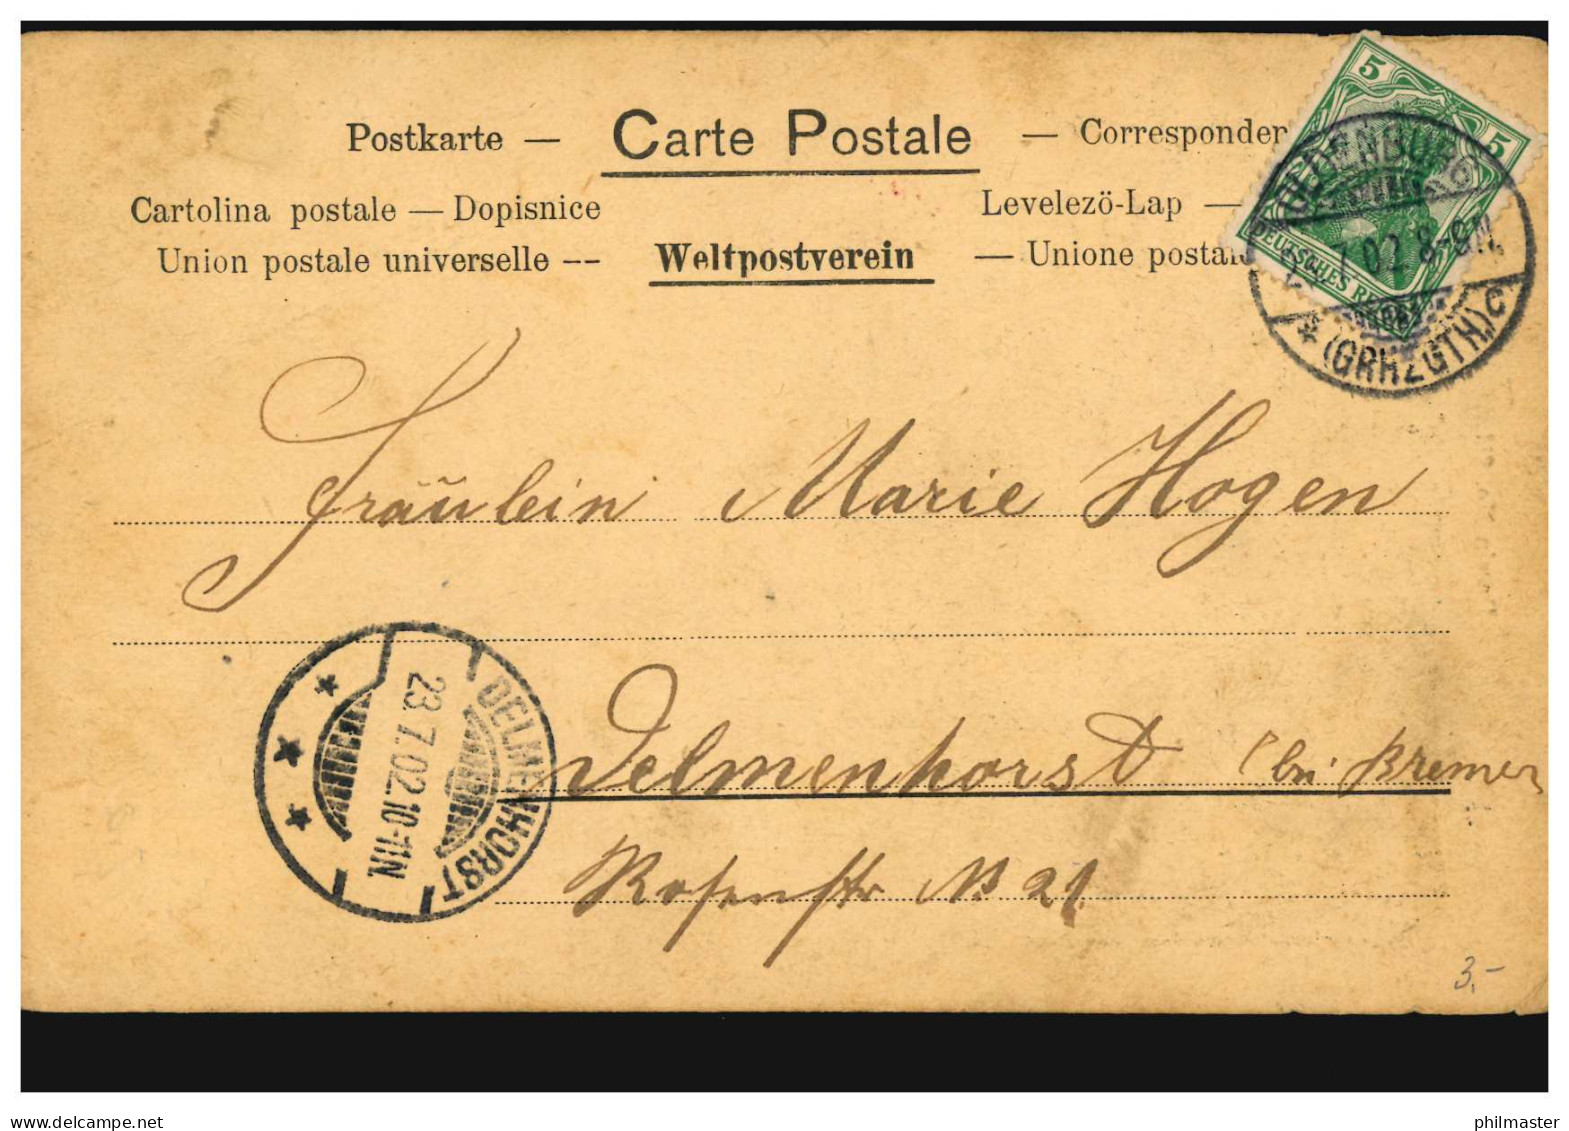 Postkarte — Carte Postale — Corresponden
Cartolina postale — Dopisnice Levelezö-Lap —
Union postale universelle -- Weltpostverein — Unione postale
5 5
DEUTSCHES RE
OLDENBURG
7.02. 8-9N.
* (GRHZGTH.) C
Fräulein Marie Hogen
DELMENHORST
23.7.02.10-11N.
* * *
Delmenhorst bei Bremen
Rosenstr No 21
3.-
delcampe.net
philmaster